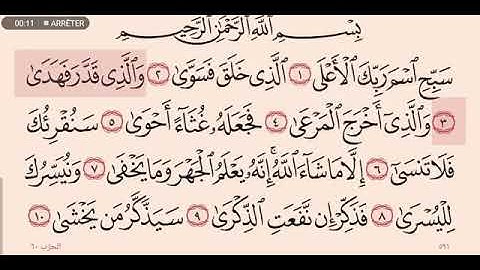 00:11 ■ ARRÊTER
بِسْمِ اللَّهِ الرَّحْمَٰنِ الرَّحِيمِ
سَبِّحِ اسْمَ رَبِّكَ الْأَعْلَى ١ الَّذِي خَلَقَ فَسَوَّىٰ ٢ وَالَّذِي قَدَّرَ فَهَدَىٰ
٣ وَالَّذِي أَخْرَجَ الْمَرْعَىٰ ٤ فَجَعَلَهُ غُثَاءً أَحْوَىٰ ٥ سَنُقْرِئُكَ
فَلَا تَنسَىٰ ٦ إِلَّا مَا شَاءَ اللَّهُ ۚ إِنَّهُ يَعْلَمُ الْجَهْرَ وَمَا يَخْفَىٰ ٧ وَنُيَسِّرُكَ
لِلْيُسْرَىٰ ٨ فَذَكِّرْ إِن نَّفَعَتِ الذِّكْرَىٰ ٩ سَيَذَّكَّرُ مَن يَخْشَىٰ ١٠
٥٩١ الحزب ٦٠